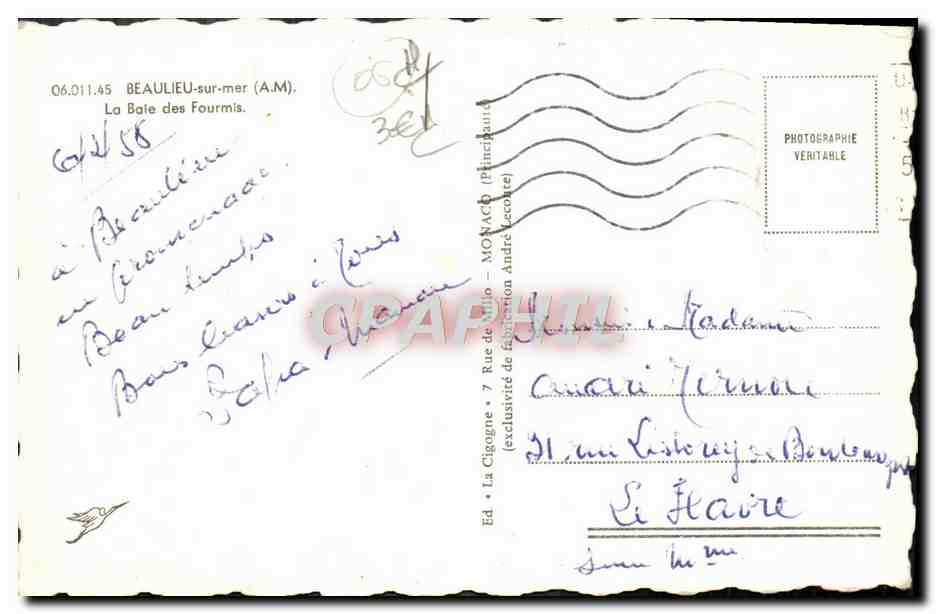 06.011.45 BEAULIEU-sur-mer (A.M).
La Baie des Fourmis.
06
3€
6/2/58
à Beaulieu
en promenade.
Beau temps
Bons baisers à tous
Papa, Maman
Ed. • La Cigogne • 7 Rue de Millo — MONACO (Principauté)
(exclusivité de fabrication André Leconte)
PHOTOGRAPHIE
VÉRITABLE
CPAPHIL
Monsieur Madame
31, rue Lestorey de Boulongne
Le Havre
Seine Mme